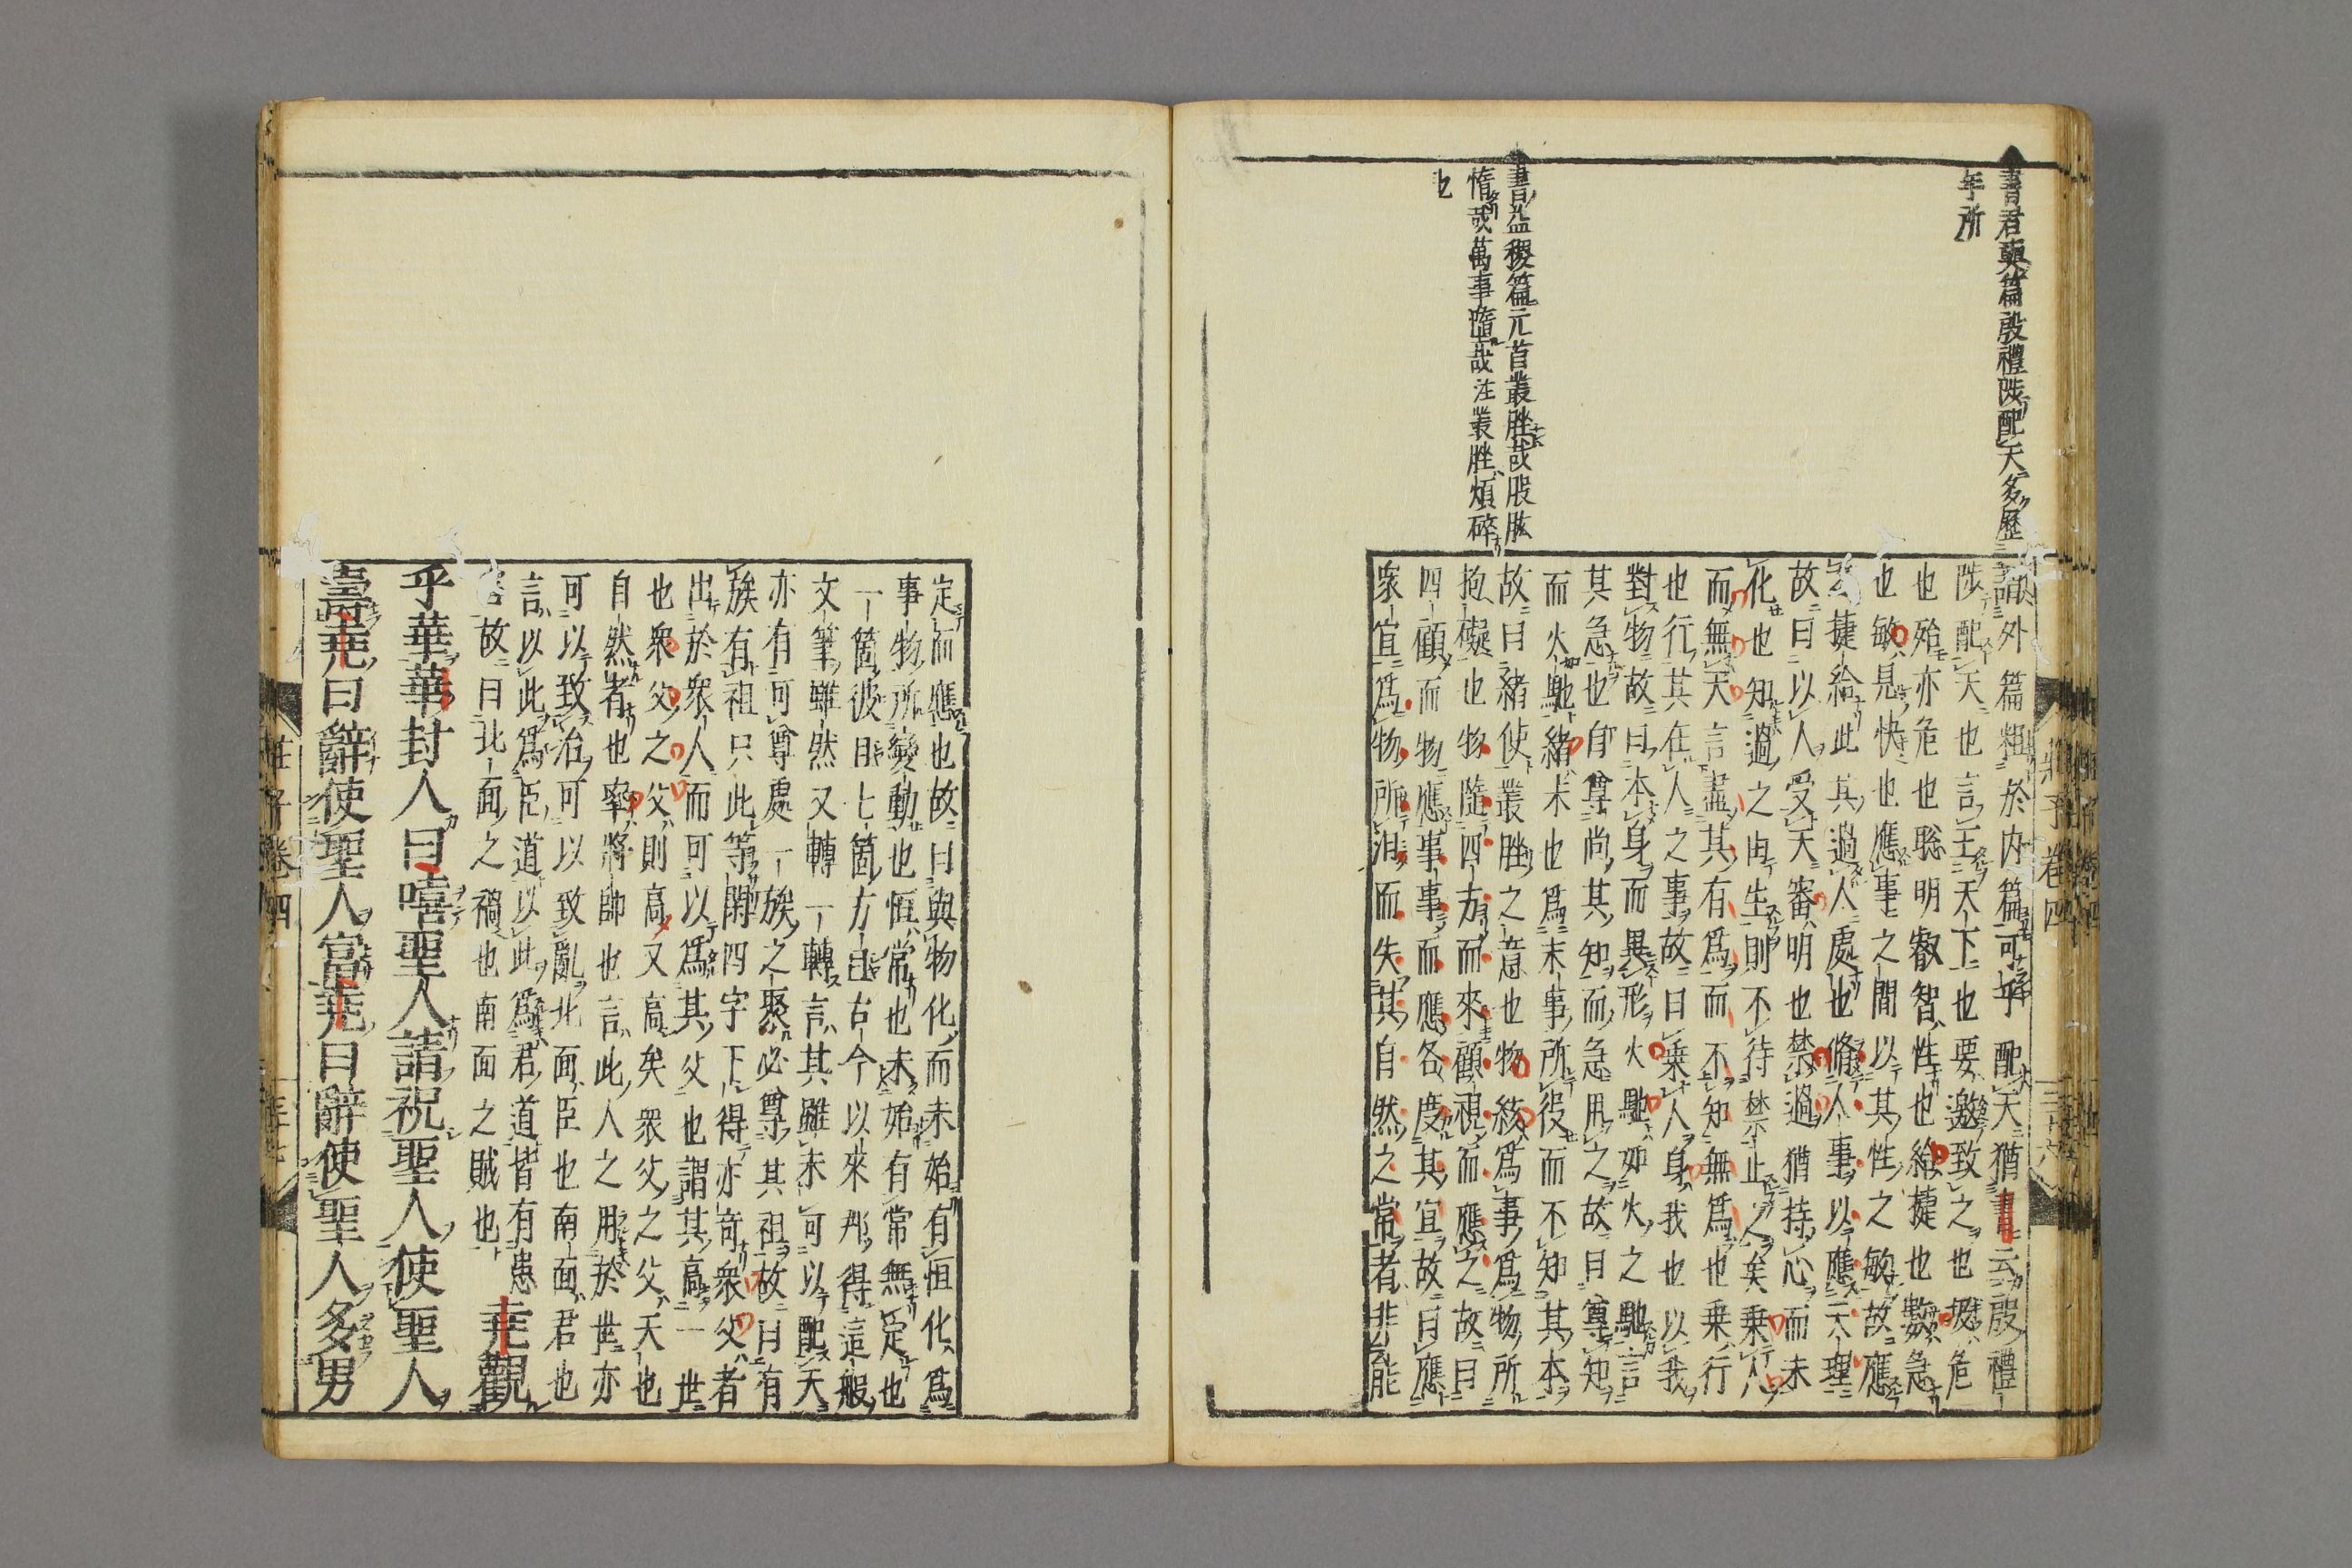 書君奭篇殷禮陟配天多歷
年所
書益稷篇元首叢脞哉股肱
惰哉萬事墮哉注叢脞煩碎
也
謂外篇粗於内篇可乎配天猶書云殷禮
陟配天也言王天下也要邀致之也圾危
也殆亦危也聡明叡智性也給捷也數急
也敏見快也應事之間以其性之敏故應
捷給此其過人處也脩人事以應天理
故曰以人受天審明也禁過猶持心而未
化也知過之由生則不待禁止之矣乗人
而無天言盡其有爲而不知無爲也乗行
也行其在人之事故曰乗人身我也以我
對物故曰本身而異形火馳如火之馳言
其急也自尊尚其知而急用之故曰尊知
而火馳緒末也爲末事所役而不知其本
故曰緒使叢脞之意也物絃爲事爲物所
抱礙也物隨四方而來顧視而應之故曰
四顧而物應事事而應各度其宜故曰應
衆宜爲物所汨而失其自然之常者非能
定而應也故曰與物化而未始有恒化爲
事物所變動也恒常也未始有常無定也
一箇彼用七箇方且古今以來那得這般
文筆雖然又轉一轉言其雖未可以配天
亦有可尊處一族之聚必尊其祖故曰有
族有祖只此等閑四字下得亦奇衆父者
出於衆人而可以爲其父也謂其高一世
也衆父之父則高又高矣衆父之父天也
自然者也率將帥也言此人之用於世亦
可以致治可以致亂北面臣也南面君也
言以此爲臣道以此爲君道皆有患
故曰北面之禍也南面之賊也 堯觀
乎華華封人曰嘻聖人請祝聖人使聖人
壽堯曰辭使聖人富堯曰辭使聖人多男
莊子卷四